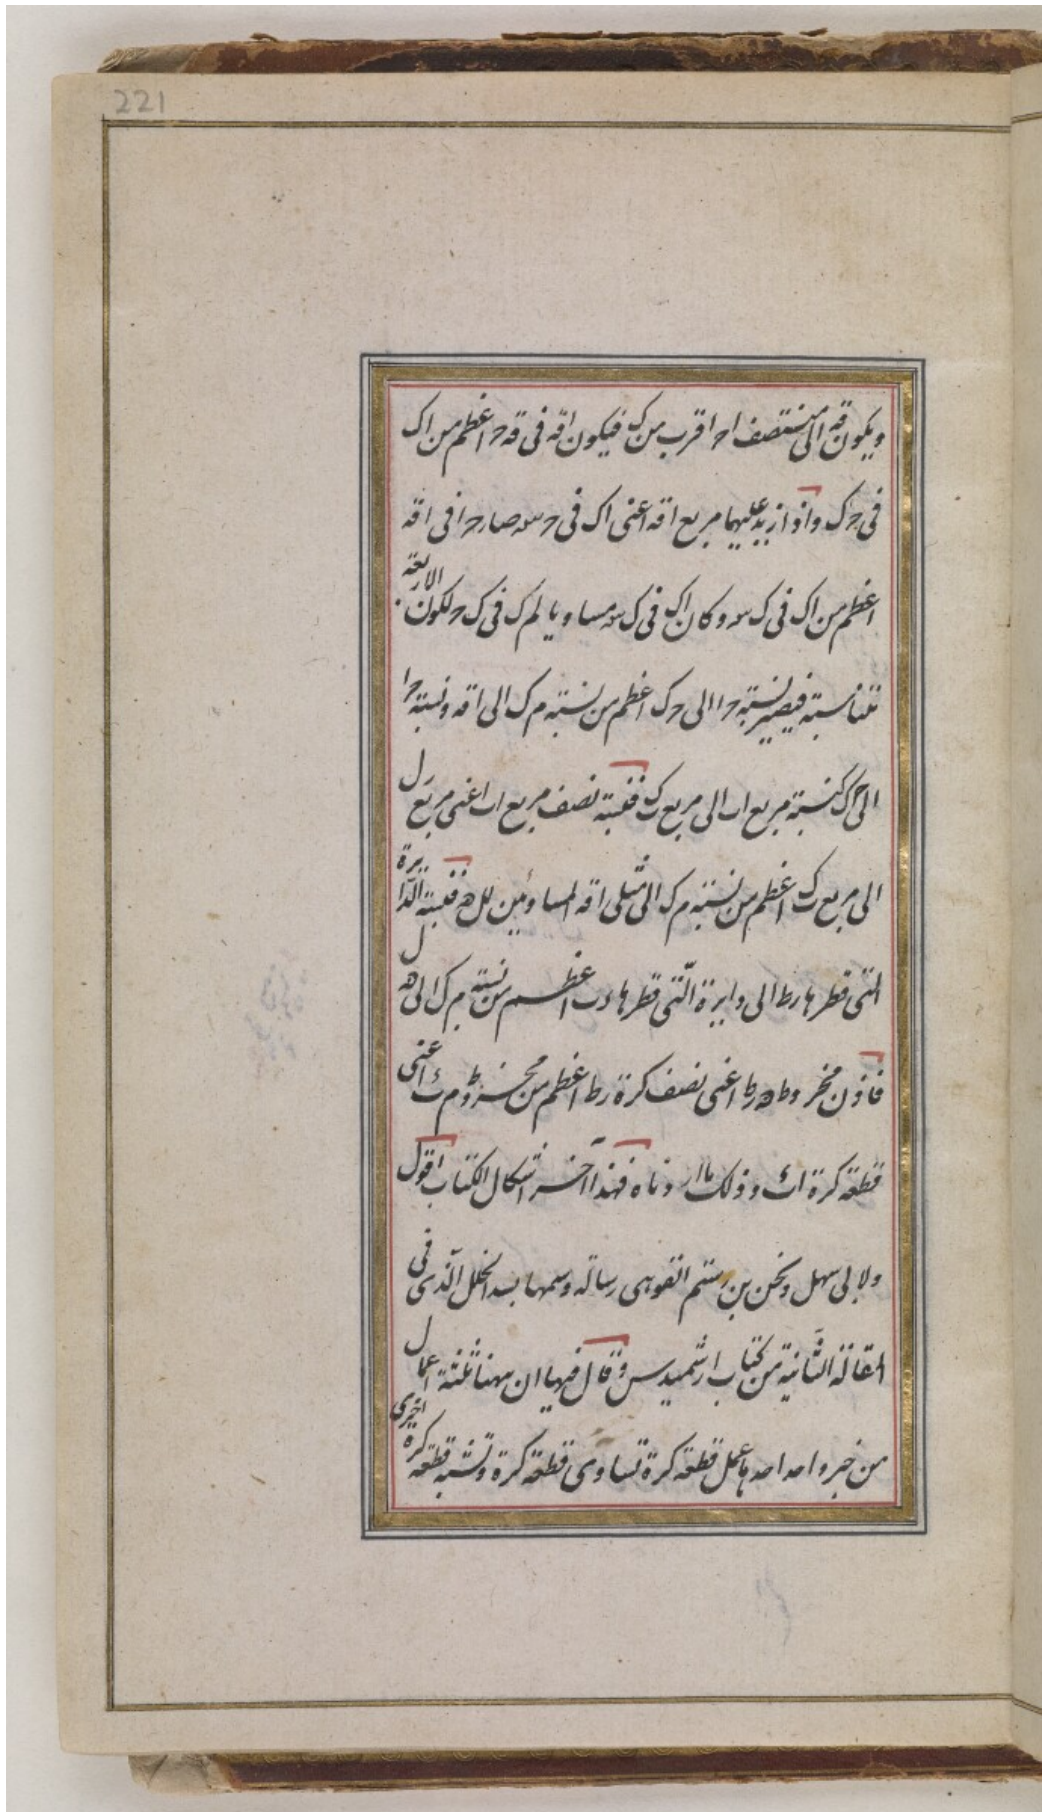 221
ويكون قه الى منتصف اح اقرب من ك فيكون اقه فى قه ح اعظم من اك
فى ح ك واذا ازيد عليهما مربع اقه اعنى اك فى ح سه صار ح ا فى اقه
اعظم من اك فى ك سه وكان اك فى ك سه مساويا لم ك فى ك ح لكون الاربعة
متناسبة فيصير نسبة ح ا الى ح ك اعظم من نسبة م ك الى اقه ونسبة ح ا
الى ح ك كنسبة مربع اب الى مربع ب ك فنسبة نصف مربع اب اعنى مربع ل
الى مربع ب ك اعظم من نسبة م ك الى مثلى اقه المساويين لل ه فنسبة الدايرة
التى قطرها رط الى دايرة الّتى قطرها ب اعظم من نسبة م ك الى ه ل
فاذن مخروط ه رط اعنى نصف كرة رط اعظم من مخروط م ب اعنى
قطعة كرة اب وذلك ما اردناه فهذا آخر اشكال الكتاب اقول
ولابى سهل ويجن بن رستم القوهى رسالة وسمها بسد الخلل الّذى فى
المقالة الثّانية من كتاب ارشميدس وقال فيها ان ههنا ثلثة اعمال
من خبر واحد احدها عمل قطعة كرة تساوى قطعة كرة وتشبه قطعة كرة اخرى